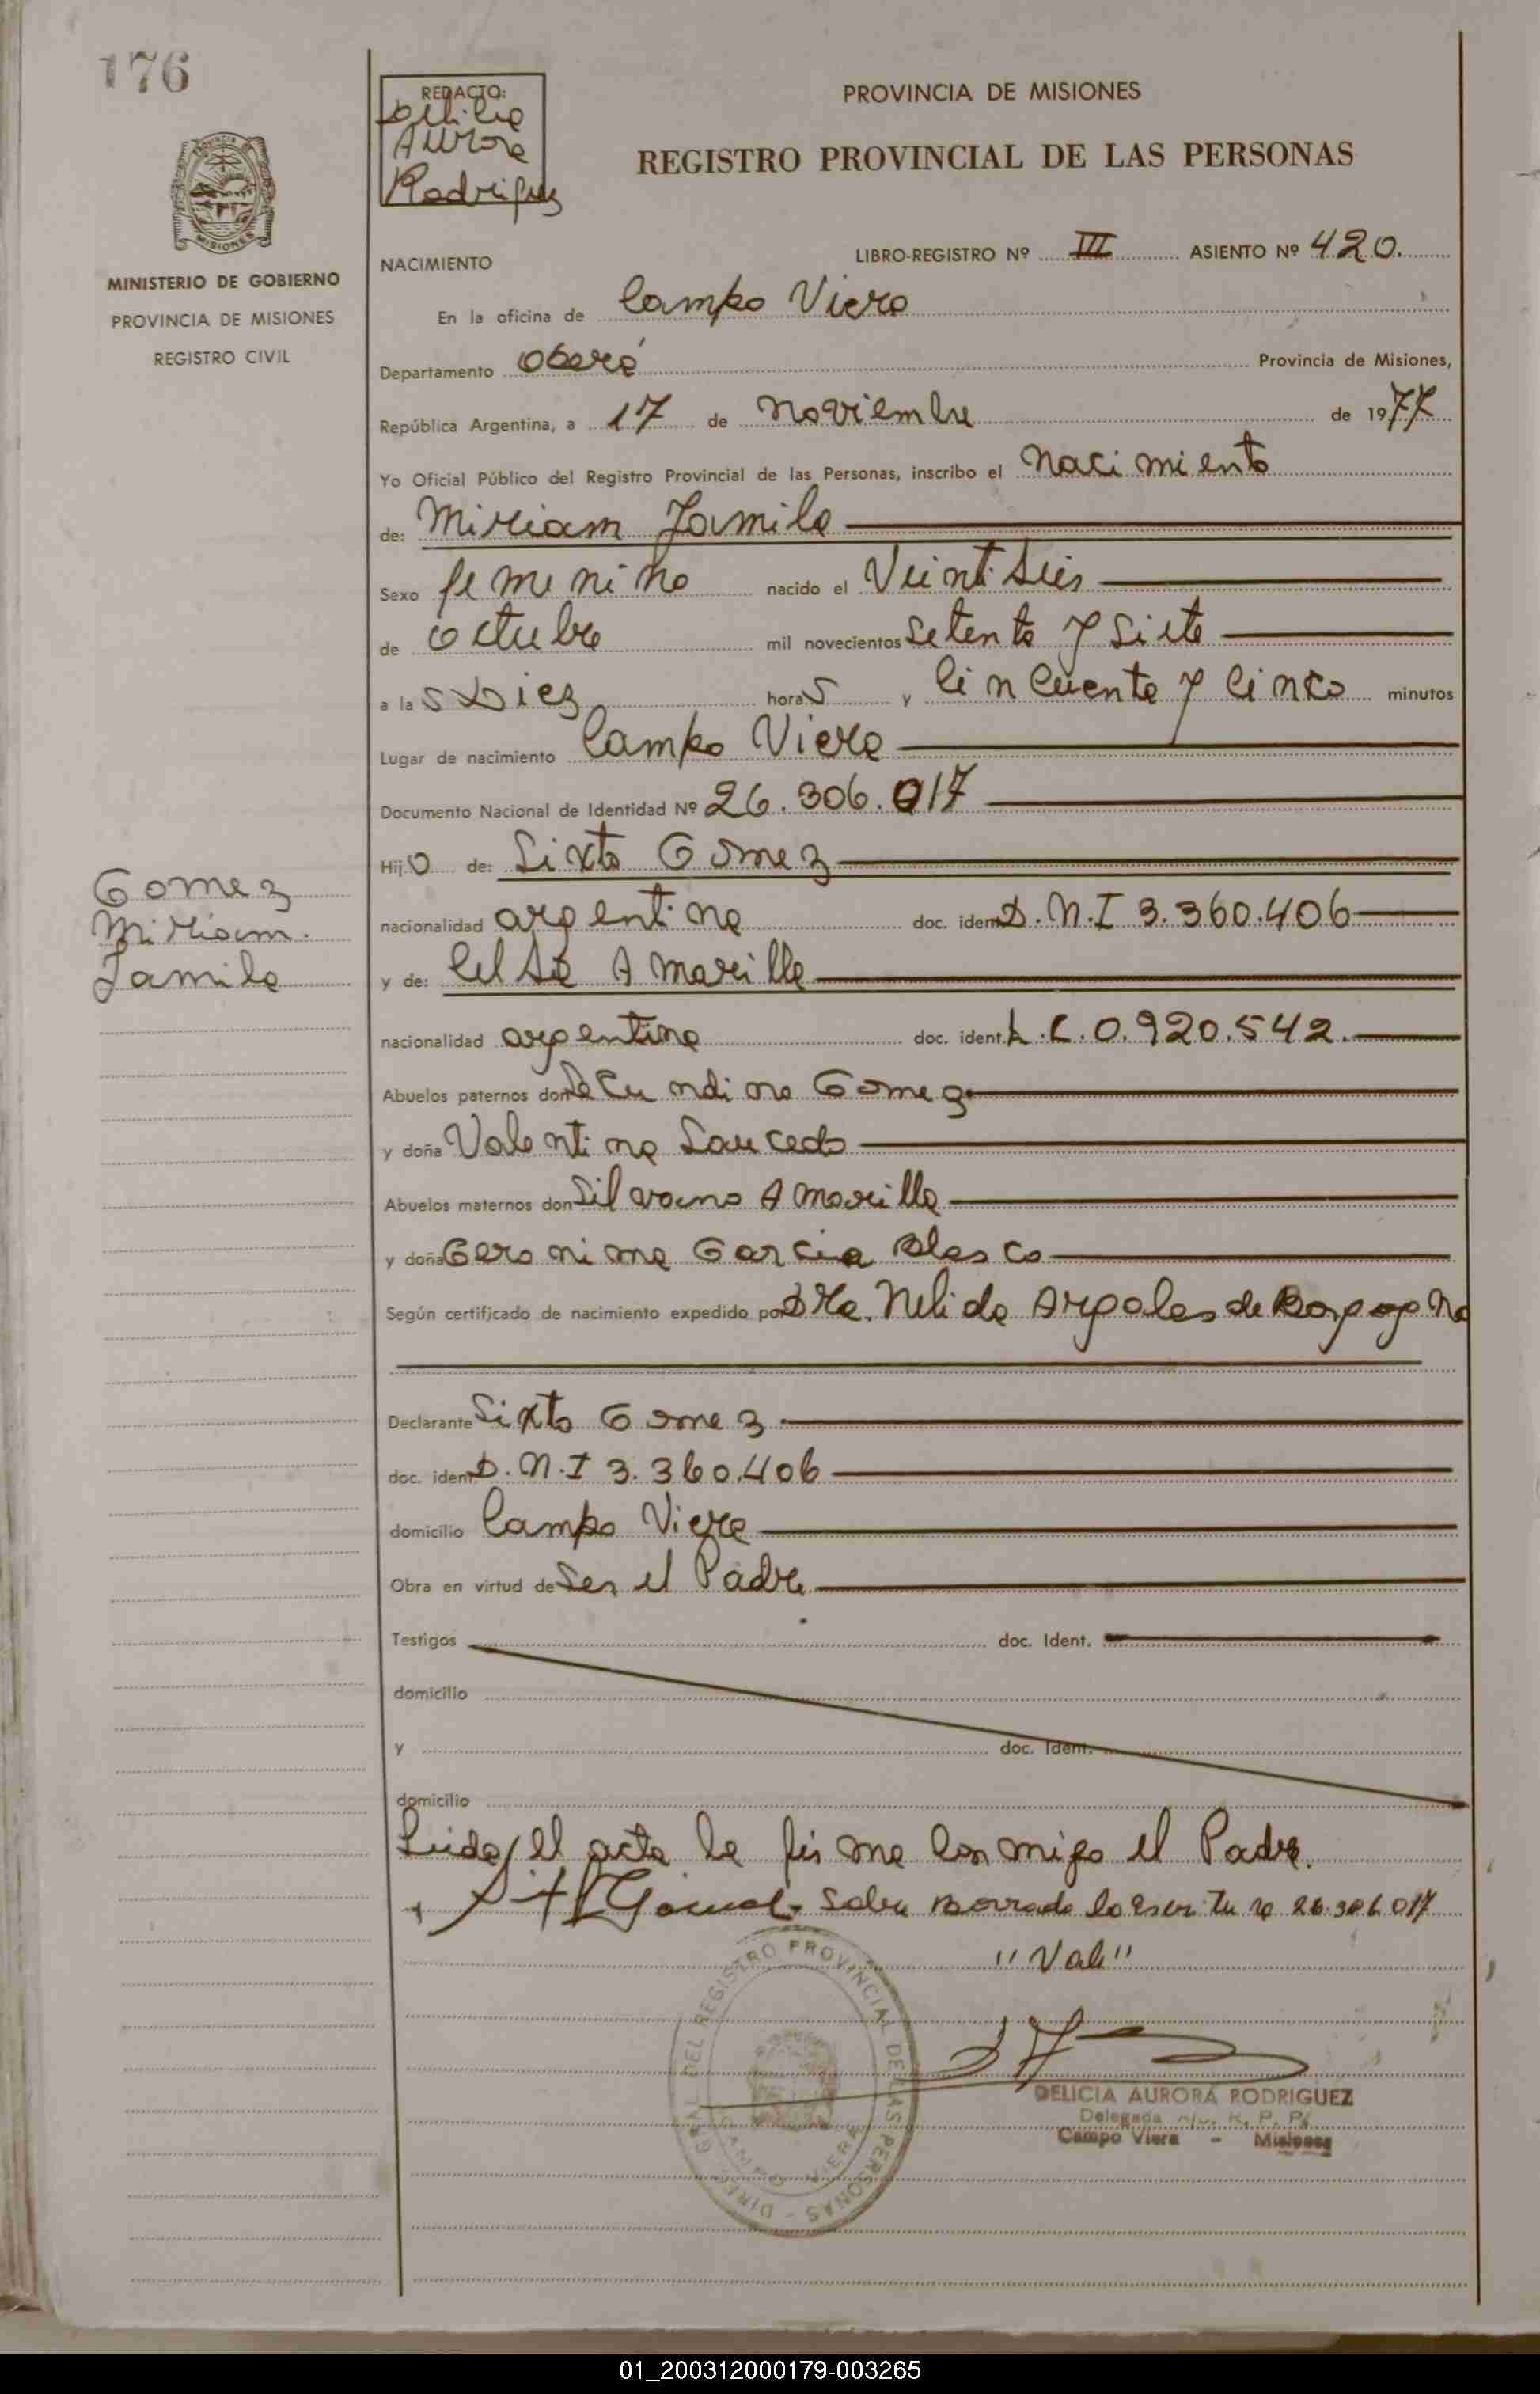 176
REDACTO:
Delicia
Aurora
Rodriguez
PROVINCIA DE MISIONES
REGISTRO PROVINCIAL DE LAS PERSONAS
MISIONES
MINISTERIO DE GOBIERNO
PROVINCIA DE MISIONES
REGISTRO CIVIL
NACIMIENTO
LIBRO-REGISTRO Nº III ASIENTO Nº 420.
En la oficina de Campo Viera
Departamento Oberá Provincia de Misiones,
República Argentina, a 17 de Noviembre de 1977
Yo Oficial Público del Registro Provincial de las Personas, inscribo el Nacimiento
de: Miriam Jamila
Sexo femenino nacido el Veintiseis
de octubre mil novecientos setenta y siete
a las Diez horas y Cincuenta y Cinco minutos
Lugar de nacimiento Campo Viera
Documento Nacional de Identidad Nº 26.306.017
Hijo de: Sixto Gomez
Gomez
Miriam.
Jamila
nacionalidad argentina doc. ident. D.N.I 3.360.406
y de: Celsa Amarilla
nacionalidad argentina doc. ident. L.C. 0.920.542.
Abuelos paternos don Secundino Gomez
y doña Valentina Saucedo
Abuelos maternos don Silvano Amarilla
y doña Geronima Garcia Blasco
Según certificado de nacimiento expedido por Dra. Nelida Argales de
Declarante Sixto Gomez
doc. ident. D.N.I 3.360.406
domicilio Campo Viera
Obra en virtud de Ser el Padre
Testigos doc. Ident.
domicilio
y doc. Ident.
domicilio
Leida el acta la firma conmigo el Padre.
Sobre Borrado la escritura 26.306.017
"Vale"
DIRECC. GRAL. DEL REGISTRO PROVINCIAL DE LAS PERSONAS -
CAMPO VIERA
DELICIA AURORA RODRIGUEZ
Delegada A/C. R. P. P.
Campo Viera - Misiones
01_200312000179-003265